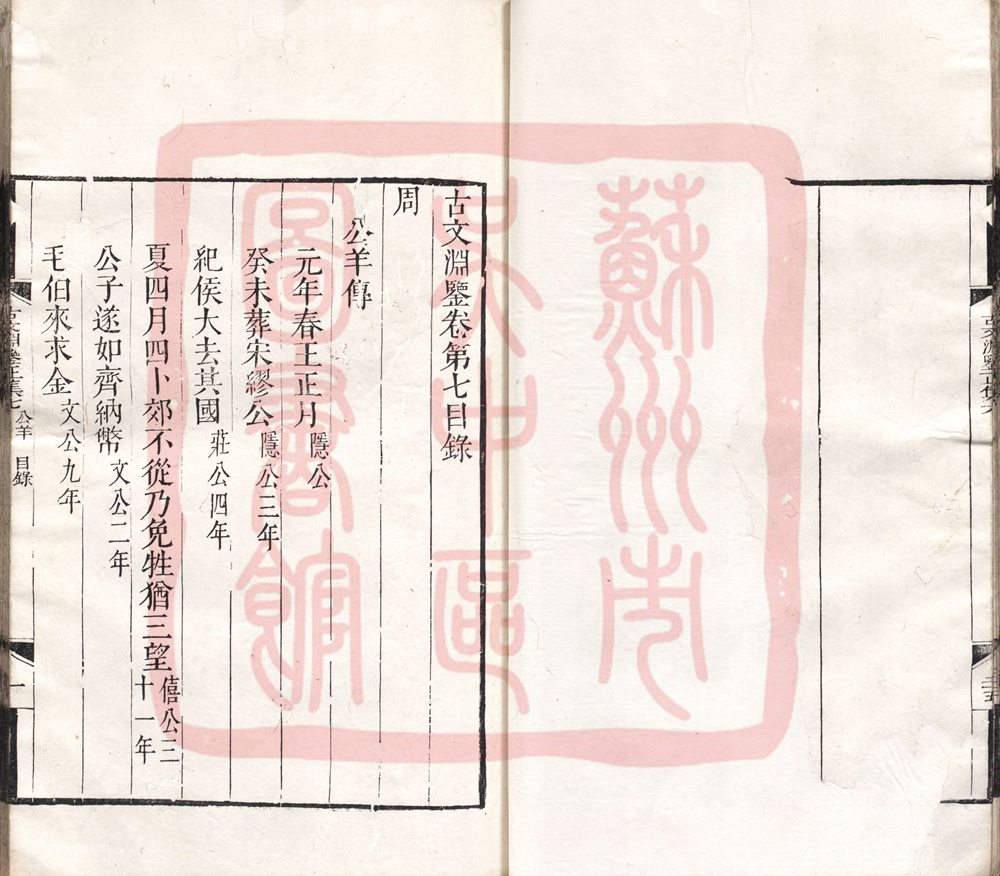 古文淵鑒卷第七目錄
周
公羊傳
元年春王正月隱公
癸未葬宋繆公隱公三年
紀侯大去其國莊公四年
夏四月四卜郊不從乃免牲猶三望僖公三十一年
公子遂如齊納幣文公二年
毛伯來求金文公九年
公羊 目錄
一
蘇州市
吳中區
圖書館